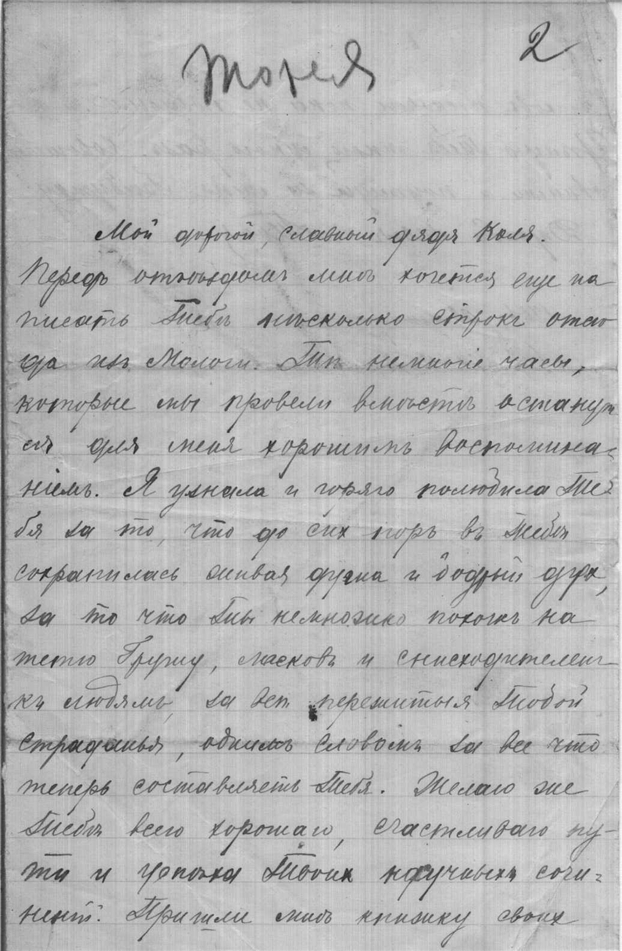 2
Мой дорогой, славный дядя Коля.
Передъ отъѣздомъ мнѣ хочется еще на
писать Тебѣ нѣсколько строкъ отсю
да изъ Мологи. Тѣ немногіе часы,
которые мы провели вмѣстѣ останут
ся для меня хорошимъ воспомина=
ніемъ. Я узнала и горячо полюбила Те=
бя за то, что до сих поръ въ Тебѣ
сохранилась живая душа и бодрый духъ,
за то что Ты немножко похожъ на
тетю Грушу, ласковъ и снисходителенъ
къ людямъ, за всѣ пережитыя Тобой
страданья, однимъ словомъ за все что
теперь составляетъ Тебя. Желаю же
Тебѣ всего хорошаго, счастливаго пу-
ти и успѣха Твоихъ научныхъ сочи=
неній. Пришли мнѣ книжку своихъ